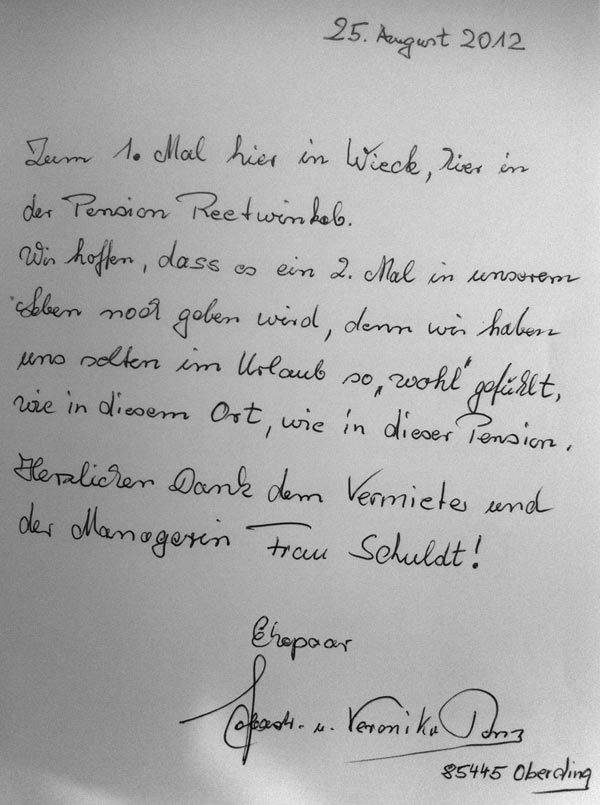 25. August 2012
Zum 1. Mal hier in Wieck, hier in
der Pension Reetwinkel.
Wir hoffen, dass es ein 2. Mal in unserem
Leben noch geben wird, denn wir haben
uns selten im Urlaub so „wohl" gefühlt,
wie in diesem Ort, wie in dieser Pension.
Herzlichen Dank dem Vermieter und
der Managerin Frau Schuldt!
Ehepaar
u. Veronika
85445 Oberding